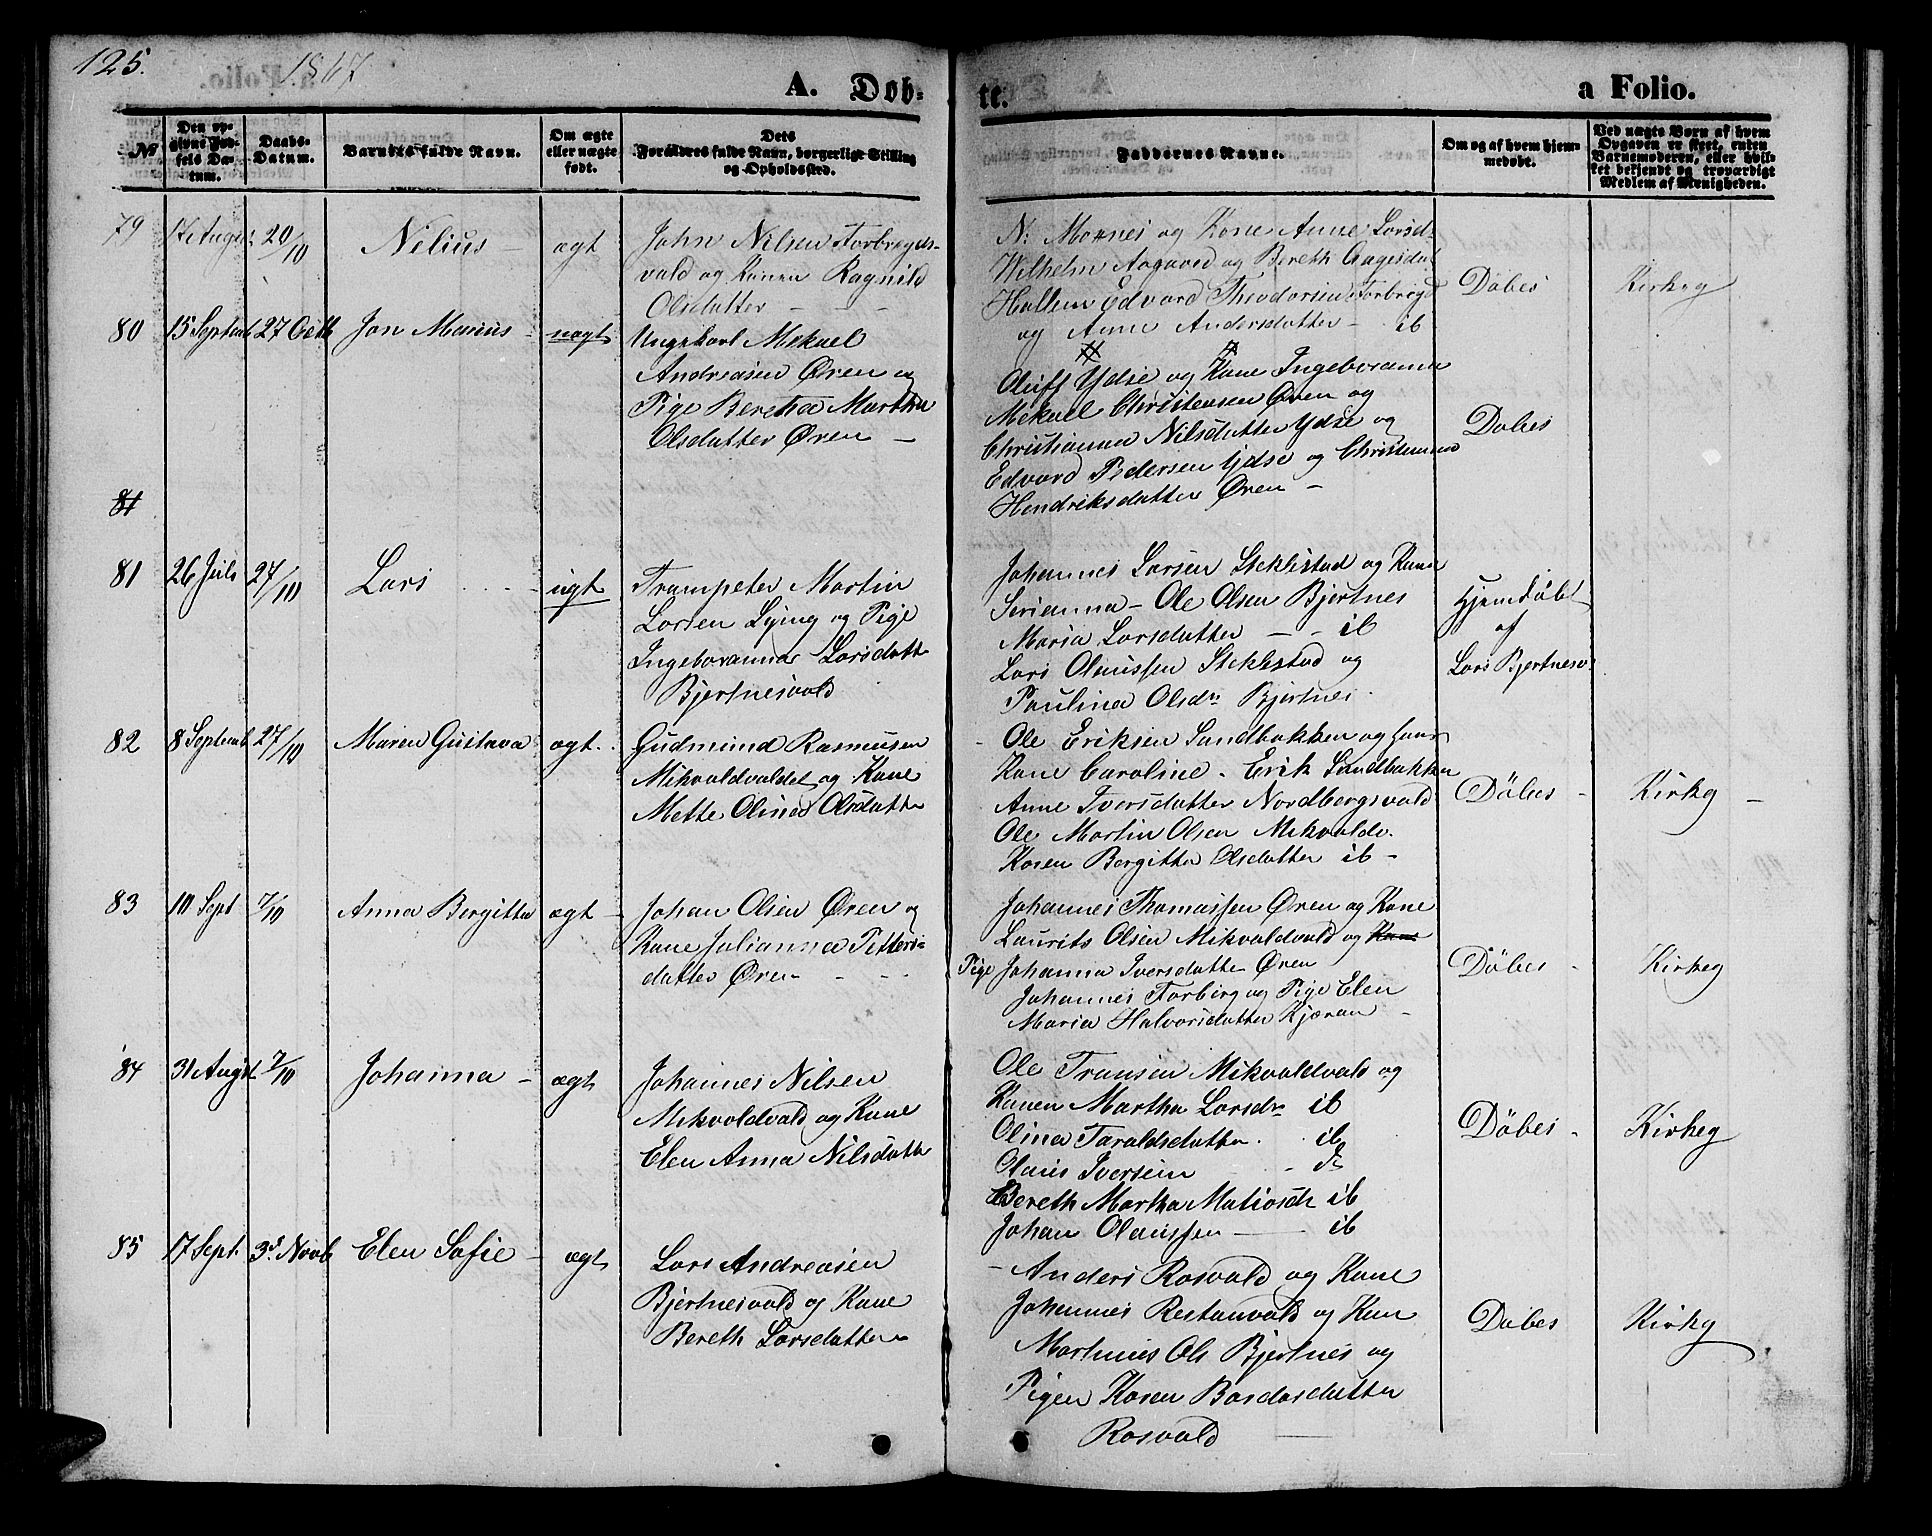 125. 1867
A. Döb-
te.
a Folio.
№
Den op-
givne Fød-
sels Da-
tum.
Daabs-
Datum.
Barnets fulde Navn.
Om ægte
eller uægte
født.
Dets
Forældres fulde Navn, borgerlige Stilling
og Opholdssted.
Faddernes Navne.
Om og af hvem hjem-
medøbt.
Ved uægte Børn af hvem
Opgaven er skeet, enten
Barnemoderen, eller hvil-
ket bekjendt og troværdigt
Medlem af Menigheden.
79
17 August
20/10
Nilius
ægt
John Nilsen Forbregds-
vald og Konen Ragnild
Olsdatter
N: Monnes og Kone Anne Larsd-
Wilhelm Aagaard og Bereth Aagesdat
Hallem Edvard Theodorsen Forbregd
og Anne Andersdatter - ib
Döbes
Kirkeg
80
15 Septemb
27 Octb
Jon Marius
uægt
Ungekarl Mekael
Andreasen Øren og
Pige Beretha Martha
Olsdatter Øren
Oluff Ydse og Kone Ingeboranna
Mekael Christensen Øren og
Christianna Nilsdatter Ydse og
Edvard Pedersen Ydse og Christianna
Hendriksdatter Øren -
Döbes
81
81
26 Juli
27/10
Lars
uægt
Trompeter Martin
Larsen Lying og Pige
Ingeboranna Larsdatt
Bjertnesvald
Johannes Larsen Steklestad og Kone
Serianna - Ole Olsen Bjertnes
Maria Larsdatter - - ib
Lars Olaussen Steklestad og
Paulina Olsdr Bjertnes
Hjemdöbt
af
Lars Bjertnesv
82
8 Septemb
27/10
Maren Gustava
ægt.
Gudmund Rasmusen
Mikvoldvaldet og Kone
Mette Olina Olsdatte
- Ole Eriksen Sandbakken og hans
Kone Caroline. Erik Sandbakken
Anne Iversdatter Nordbergsvald
Ole Martin Olsen Mikvoldv.
Karen Bergitta Olsdatter ib -
Döbes -
Kirkeg -
83
10 Sept
7/10
Anna Bergitta
ægt -
Johan Olsen Øren og
Kone Julianna Petters-
datter Øren
Johannes Thomassen Øren og Kone
Laurits Olsen Mikvoldvald og Kone
Pige Johanna Iversdatte Øren
Johannes Forberg og Pige Elen
Maria Halvorsdatter Kjæran -
Döbes -
Kirkeg
84
31 Augst
7/10
Johanna -
ægt
Johannes Nilsen
Mikvoldvald og Kone
Elen Anna Nilsdatte
Ole Fransen Mikvoldvald og
Konen Martha Larsdr ib
Olina Taraldsdatter ib
Olaus Iversen - do
Bereth Martha Matiasdr ib
Johan Olaussen ib
Döbes -
Kirkeg
85
17 Sept.
3d Novb
Elen Sofie -
ægt
Lars Andreasen
Bjertnesvald og Kone
Bereth Larsdatter
- Anders Rosvald og Kone
Johannes Restauvald og Kone
Martinus Ols Bjertnes og
Pigen Karen Bardosdatter
Rosvald
Döbes
Kirkeg